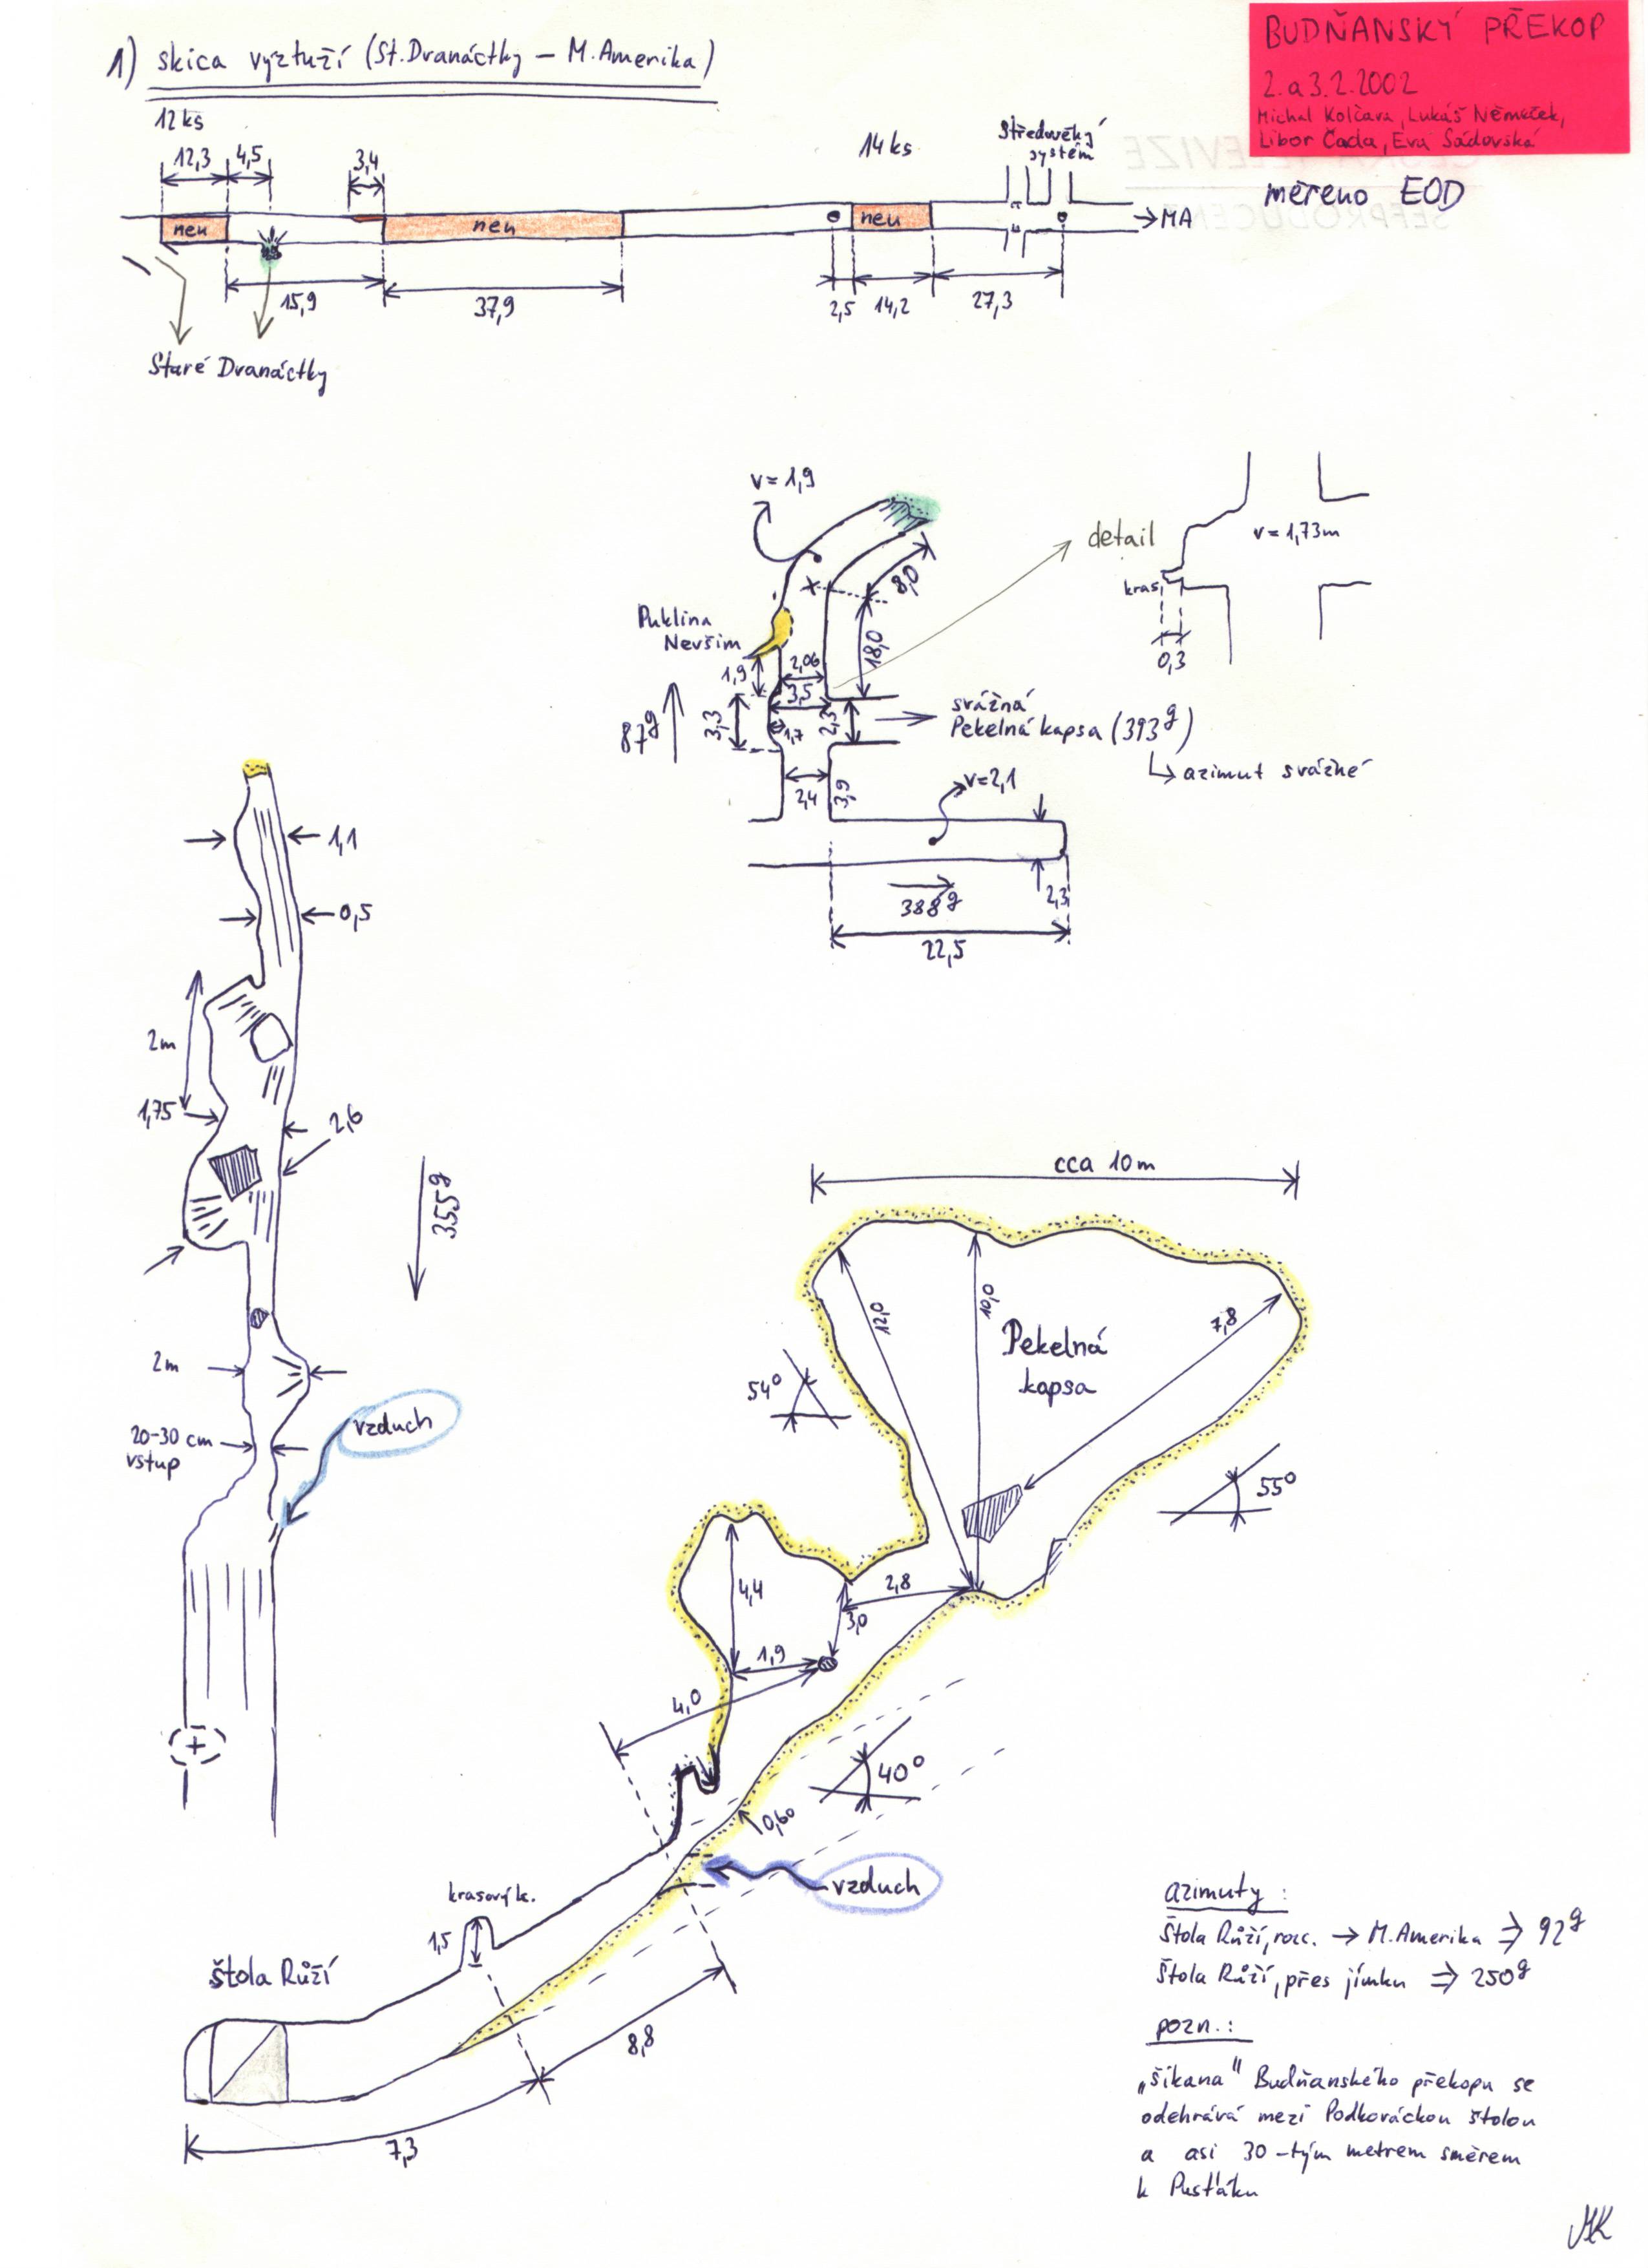 1) skica výztuží (St. Dvanáctky – M. Amerika)
BUDŇANSKÝ PŘEKOP
2. a 3. 2. 2002
Michal Kolčava, Lukáš Němeček,
Libor Čada, Eva Sádovská
měřeno EOD
12 ks
12,3
4,5
3,4
14 ks
Středověký
systém
neu
neu
neu
→ MA
15,9
37,9
2,5
14,2
27,3
Staré Dvanáctky
v = 1,9
8,0
detail
v = 1,73m
kras
0,3
Puklina
Nevším
18,0
1,9
2,06
3,5
3,3
1,7
2,3
87g
svážná
Pekelná kapsa (393g)
azimut svážné
2,4
3,9
v=2,1
2,3
388g
22,5
1,1
0,5
2m
1,75
2,6
355g
2m
20-30 cm
vstup
vzduch
+
cca 10m
12,0
10,0
7,8
Pekelná
kapsa
54°
55°
4,4
2,8
3,0
1,9
4,0
40°
0,60
vzduch
krasový k.
1,5
štola Růží
8,8
7,3
azimuty :
Štola Růží, → M. Amerika ⇒ 92g
Štola Růží, přes jímku ⇒ 250g
pozn.:
„šikana" Budňanského překopu se
odehrává mezi Podkováckou štolou
a asi 30-tým metrem směrem
k Pusťáku
MK